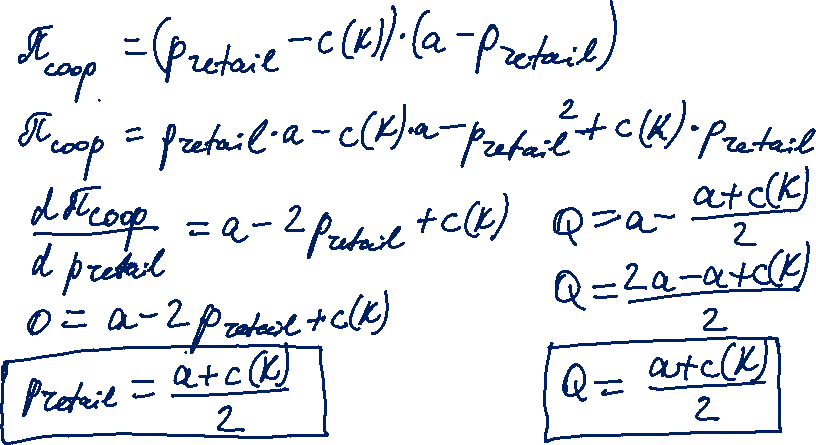 π_coop = (p_retail − c(K))·(a − p_retail)
π_coop = p_retail·a − c(K)·a − p_retail² + c(K)·p_retail
dπ_coop / d p_retail = a − 2p_retail + c(K)
0 = a − 2p_retail + c(K)
p_retail = (a + c(K)) / 2
Q = a − (a + c(K)) / 2
Q = (2a − a + c(K)) / 2
Q = (a + c(K)) / 2